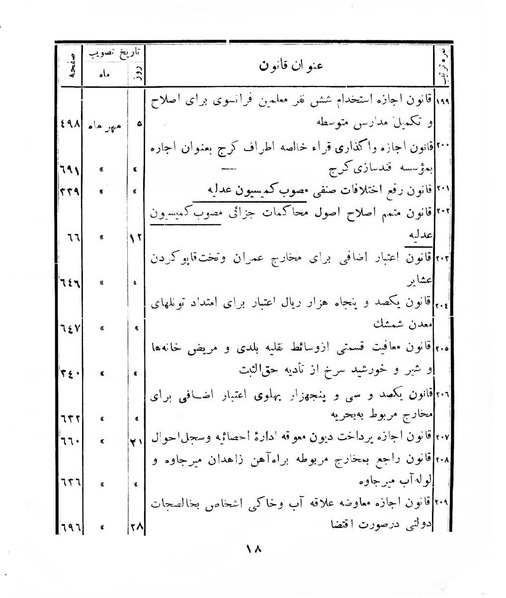 نمره ترتیب	عنوان قانون	تاریخ تصویب	صفحه
روز	ماه
۱۹۹	قانون اجازه استخدام شش نفر معلمین فرانسوی برای اصلاح
و تکمیل مدارس متوسطه	۵	مهر ماه	۴۹۸
۲۰۰	قانون اجازه واگذاری قراء خالصه اطراف کرج بعنوان اجاره
بمؤسسه قندسازی کرج —	»	»	۶۹۱
۲۰۱	قانون رفع اختلافات صنفی مصوب کمیسیون عدلیه	»	»	۲۳۹
۲۰۲	قانون متمم اصلاح اصول محاکمات جزائی مصوب کمیسیون
عدلیه	۱۲	»	۶۶
۲۰۳	قانون اعتبار اضافی برای مخارج عمران وتخت‌قاپو کردن
عشایر	»	»	۶۴۶
۲۰۴	قانون یکصد و پنجاه هزار ریال اعتبار برای امتداد تونلهای
معدن شمشك	»	»	۶۴۷
۲۰۵	قانون معافیت قسمتی ازوسائط نقلیه بلدی و مریض خانه‌ها
و شیر و خورشید سرخ از تأدیه حق‌الثبت	»	»	۳۴۰
۲۰۶	قانون یکصد و سی و پنجهزار پهلوی اعتبار اضافی برای
مخارج مربوط به‌بحریه	»	»	۶۳۲
۲۰۷	قانون اجازه پرداخت دیون معوقه ادارهٔ احصائیه وسجل‌احوال	۲۱	»	۶۶۰
۲۰۸	قانون راجع بمخارج مربوطه براه‌آهن زاهدان میرجاوه و
لوله‌آب میرجاوه	»	»	۶۳۶
۲۰۹	قانون اجازه معاوضه علاقه آب وخاکی اشخاص بخالصجات
دولتی درصورت اقتضا	۲۸	»	۶۹۶
۱۸